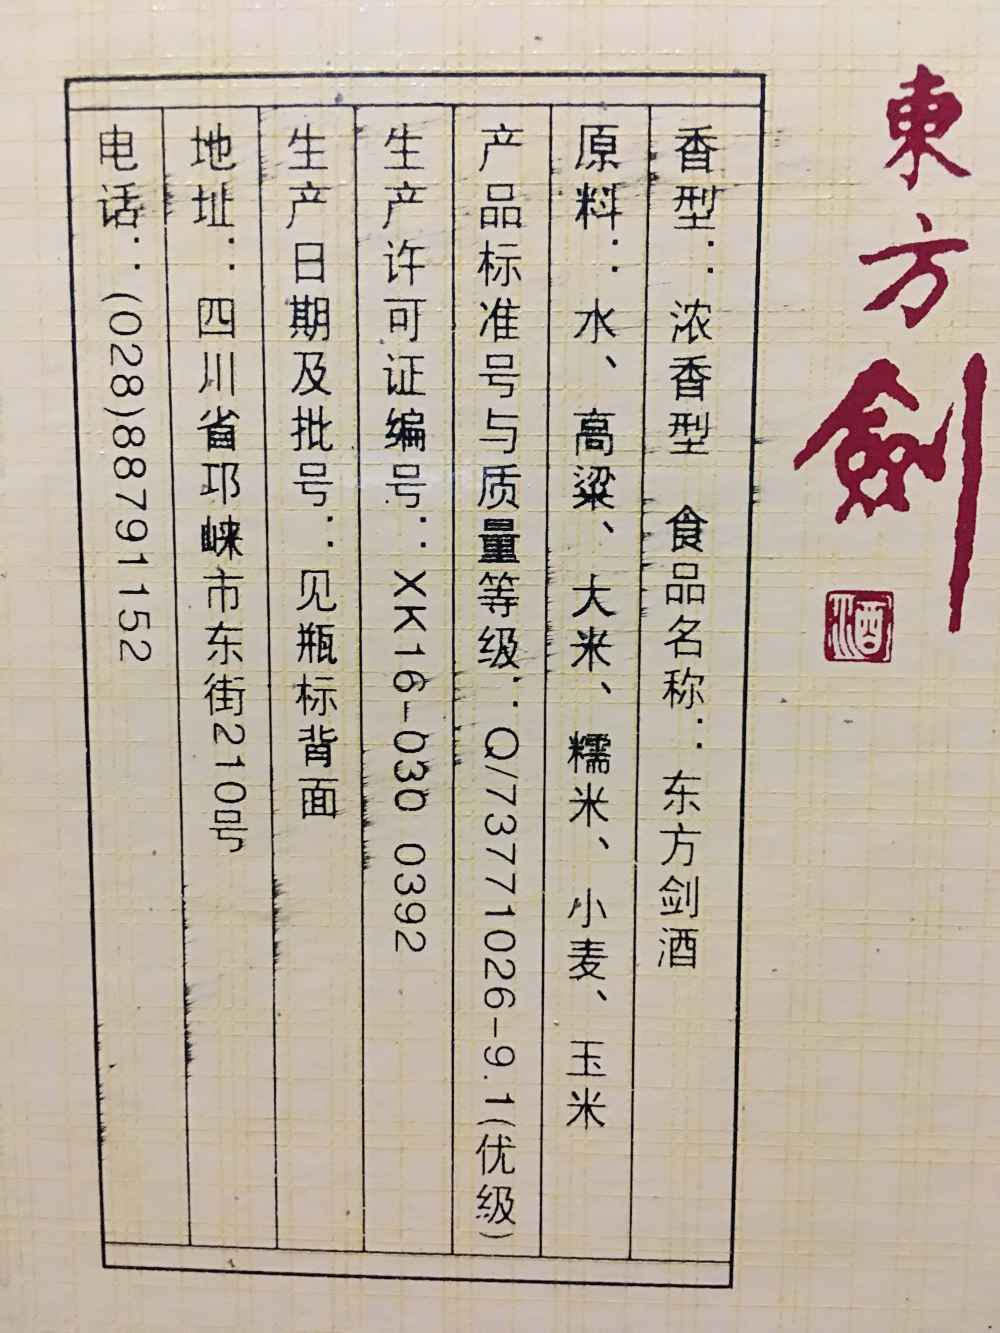 東方劍
酒
香型：浓香型 食品名称：东方剑酒
原料：水、高粱、大米、糯米、小麦、玉米
产品标准号与质量等级：Q/73771026-9.1(优级)
生产许可证编号：XK16-030 0392
生产日期及批号：见瓶标背面
地址：四川省邛崃市东街210号
电话：(028)88791152